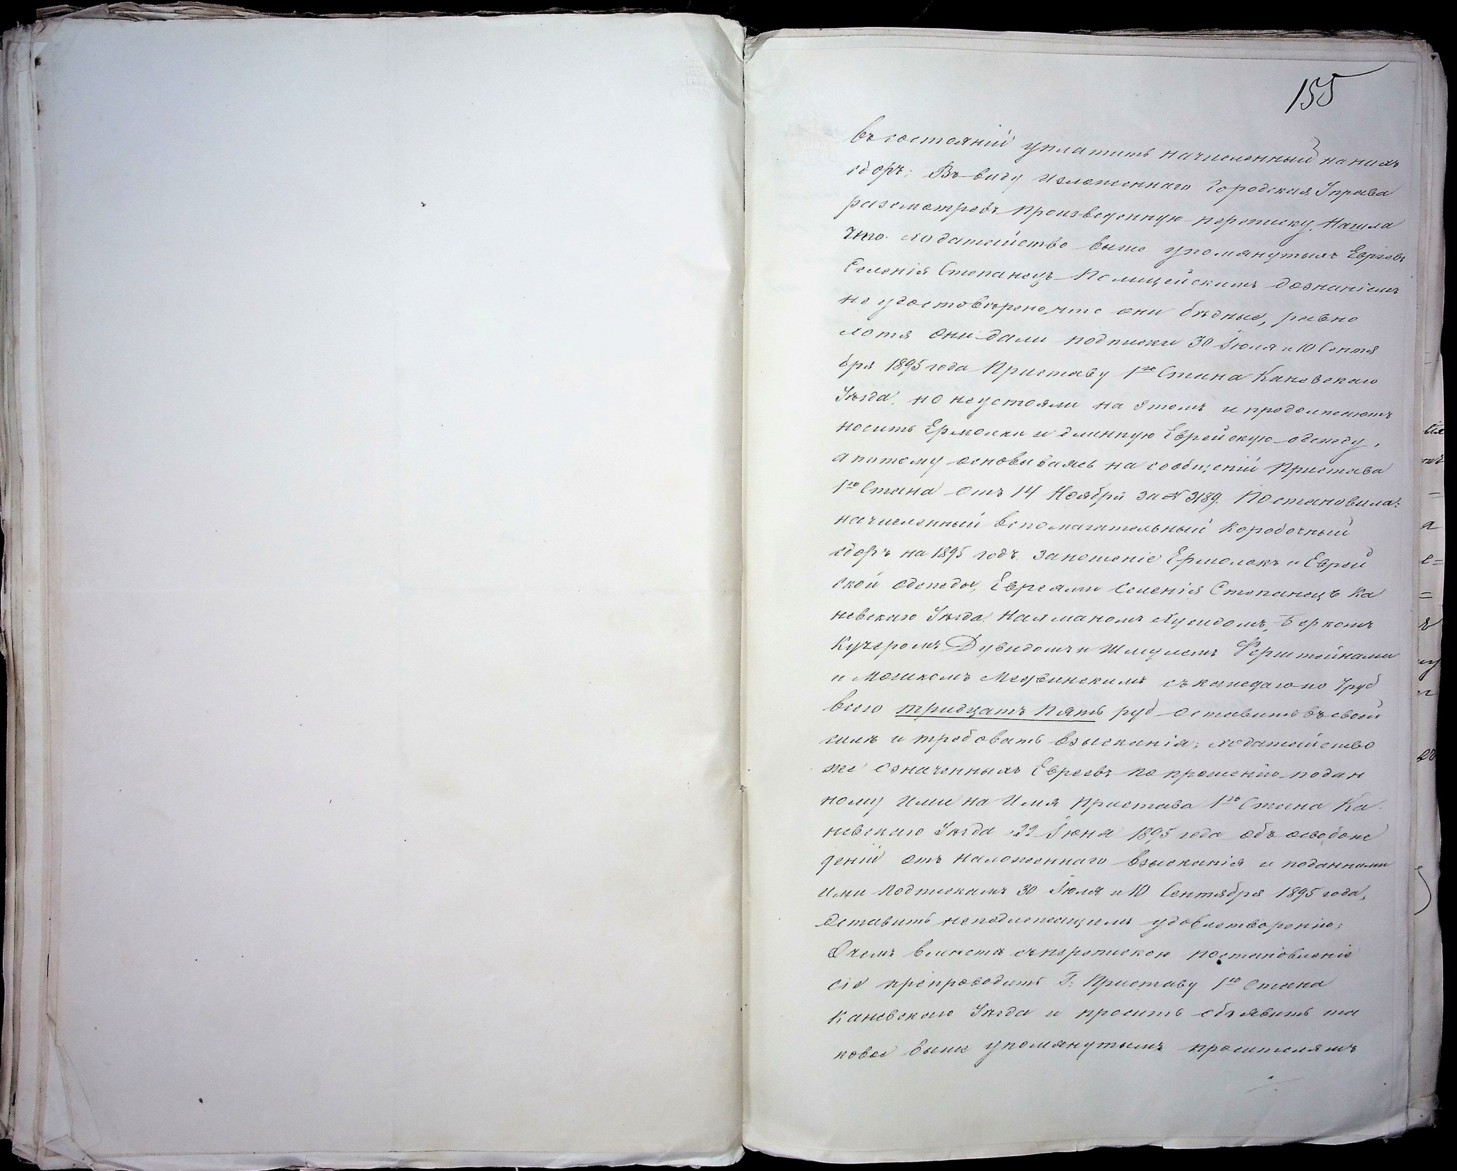 155
въ состояніи уплатить начисленный на нихъ
сборъ: Въ виду изложеннаго Городская Управа
разсмотревъ произведенную переписку, Нашла
что ходатайство выше упомянутыхъ Евреевъ
Селенія Степанецъ Полицейскимъ дознаніемъ
не удостовѣрено, что они бѣдные, равно
хотя они дали подписки 30 Іюля и 10 Сентя
бря 1895 года Приставу 1го Стана Каневскаго
Уѣзда, но неустояли на этомъ и продолжаютъ
носить Ермолки и длинную Еврейскую одежду,
а потому основываясь на сообщеніи Пристава
1го Стана отъ 14 Ноября за № 3189. Постановила:
начисленный вспомагательный Коробочный
сборъ на 1895 годъ за ношеніе Ермолокъ и Еврей
ской одежды, Евреями селенія Степанецъ Ка
невскаго Уѣзда Нахманомъ Беркомъ
Кучеромъ Дувидомъ и Шмулемъ Ферштейнами
и Мошкомъ Медвинскимъ съ каждаго по 7 руб
всего тридцать пять руб оставить въ своей
силѣ и требовать взысканія; ходатайство
же означенныхъ Евреевъ по прошенію подан
ному ими на Имя Пристава 1го Стана Ка
невскаго Уѣзда 22 Іюня 1895 года объ освобож
деніи отъ наложеннаго взысканія и поданными
ими подпискамъ 30 Іюля и 10 Сентября 1895 года,
Оставить неподлежащимъ удовлетворенію;
О чемъ вмѣстѣ съ перепискою постановленіе
сіе препроводить Г. Приставу 1го Стана
Каневскаго Уѣзда и просить объявить та
ковое выше упомянутымъ просителямъ